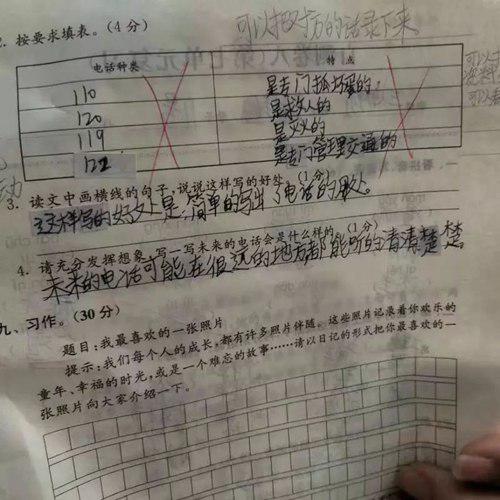 2. 按要求填表。(4分)
可以把对方的话录下来
电话种类 特点
110 是专门抓坏蛋的
120 是救人的
119 是火的
122 是专门管理交通的
3. 读文中画横线的句子,说说这样写的好处。(1分)
这样写的好处是,简单的写出了电话的用处。
4. 请充分发挥想象,写一写未来的电话会是什么样的。(1分)
未来的电话可能在很远的地方都能听的清清楚楚
九、习作。(30分)
题目:我最喜欢的一张照片
提示:我们每个人的成长,都有许多照片伴随。这些照片记录着你欢乐的
童年、幸福的时光,或是一个难忘的故事……请以日记的形式把你最喜欢的一
张照片向大家介绍一下。